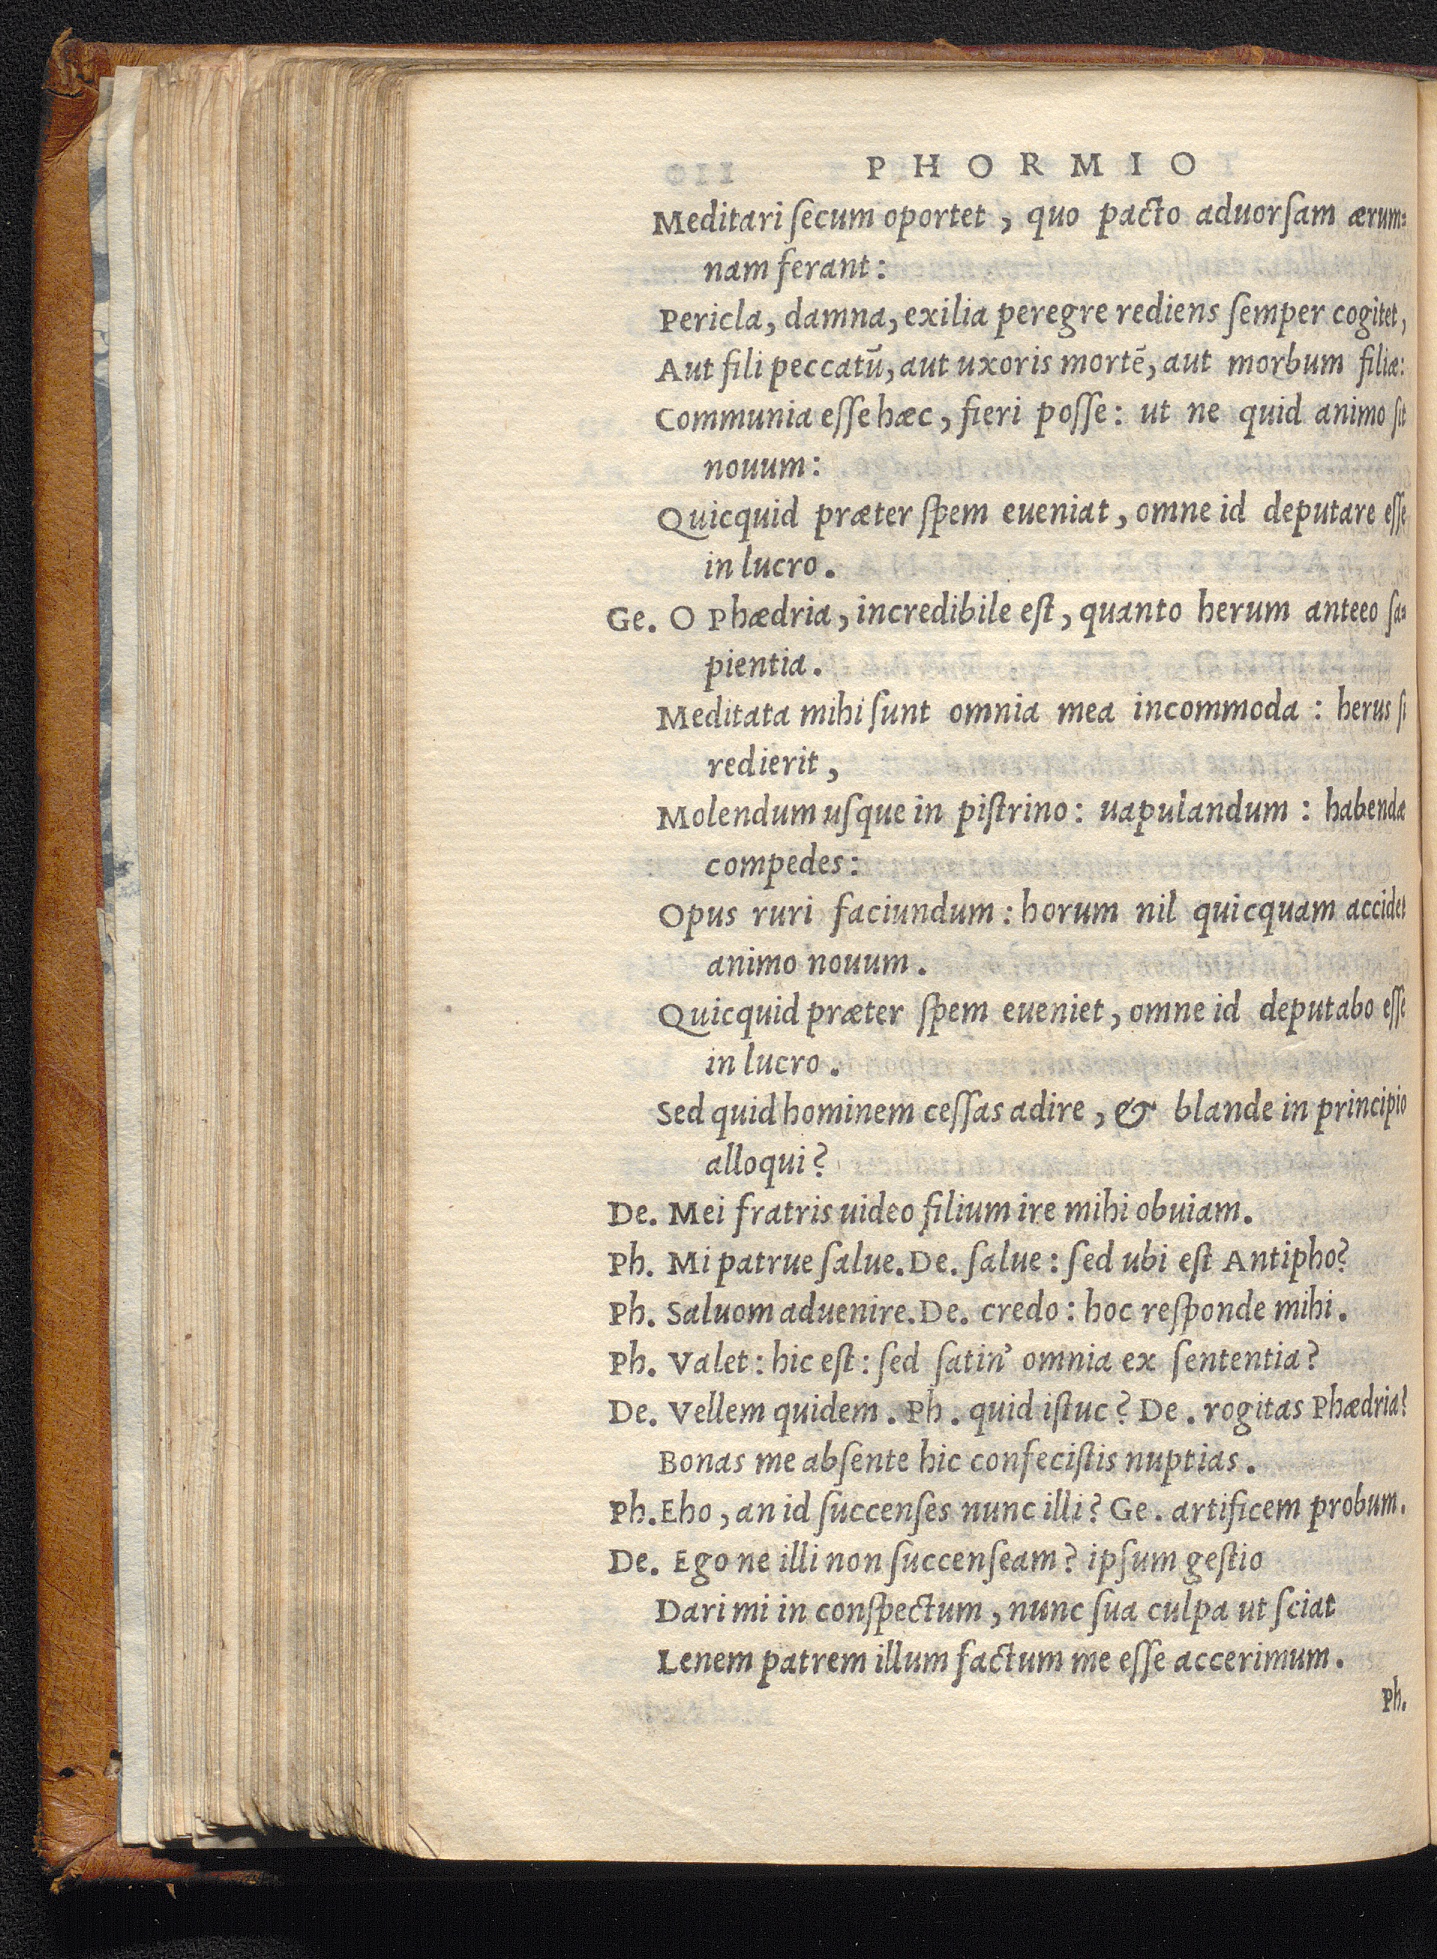 PHORMIO
Meditari ſecum oportet, quo pacto aduorſam ærum=
nam ferant:
Pericla, damna, exilia peregre rediens ſemper cogitet,
Aut fili peccatū, aut uxoris mortē, aut morbum filiæ:
Communia eſſe hæc, fieri poſſe: ut ne quid animo ſit
nouum:
Quicquid præter ſpem eueniat, omne id deputare eſſe
in lucro.
Ge. O Phædria, incredibile eſt, quanto herum anteeo ſa=
pientia.
Meditata mihi ſunt omnia mea incommoda: herus ſi
redierit,
Molendum uſque in piſtrino: uapulandum: habendæ
compedes:
Opus ruri faciundum: horum nil quicquam accidet
animo nouum.
Quicquid præter ſpem eueniet, omne id deputabo eſſe
in lucro.
Sed quid hominem ceſſas adire, & blande in principio
alloqui?
De. Mei fratris uideo filium ire mihi obuiam.
Ph. Mi patrue ſalue. De. ſalue: ſed ubi eſt Antipho?
Ph. Saluom aduenire. De. credo: hoc reſponde mihi.
Ph. Valet: hic eſt: ſed ſatin' omnia ex ſententia?
De. Vellem quidem. Ph. quid iſtuc? De. rogitas Phædria?
Bonas me abſente hic confeciſtis nuptias.
Ph. Eho, an id ſuccenſes nunc illi? Ge. artificem probum.
De. Ego ne illi non ſuccenſeam? ipſum geſtio
Dari mi in conſpectum, nunc ſua culpa ut ſciat
Lenem patrem illum factum me eſſe accerimum.
Ph.